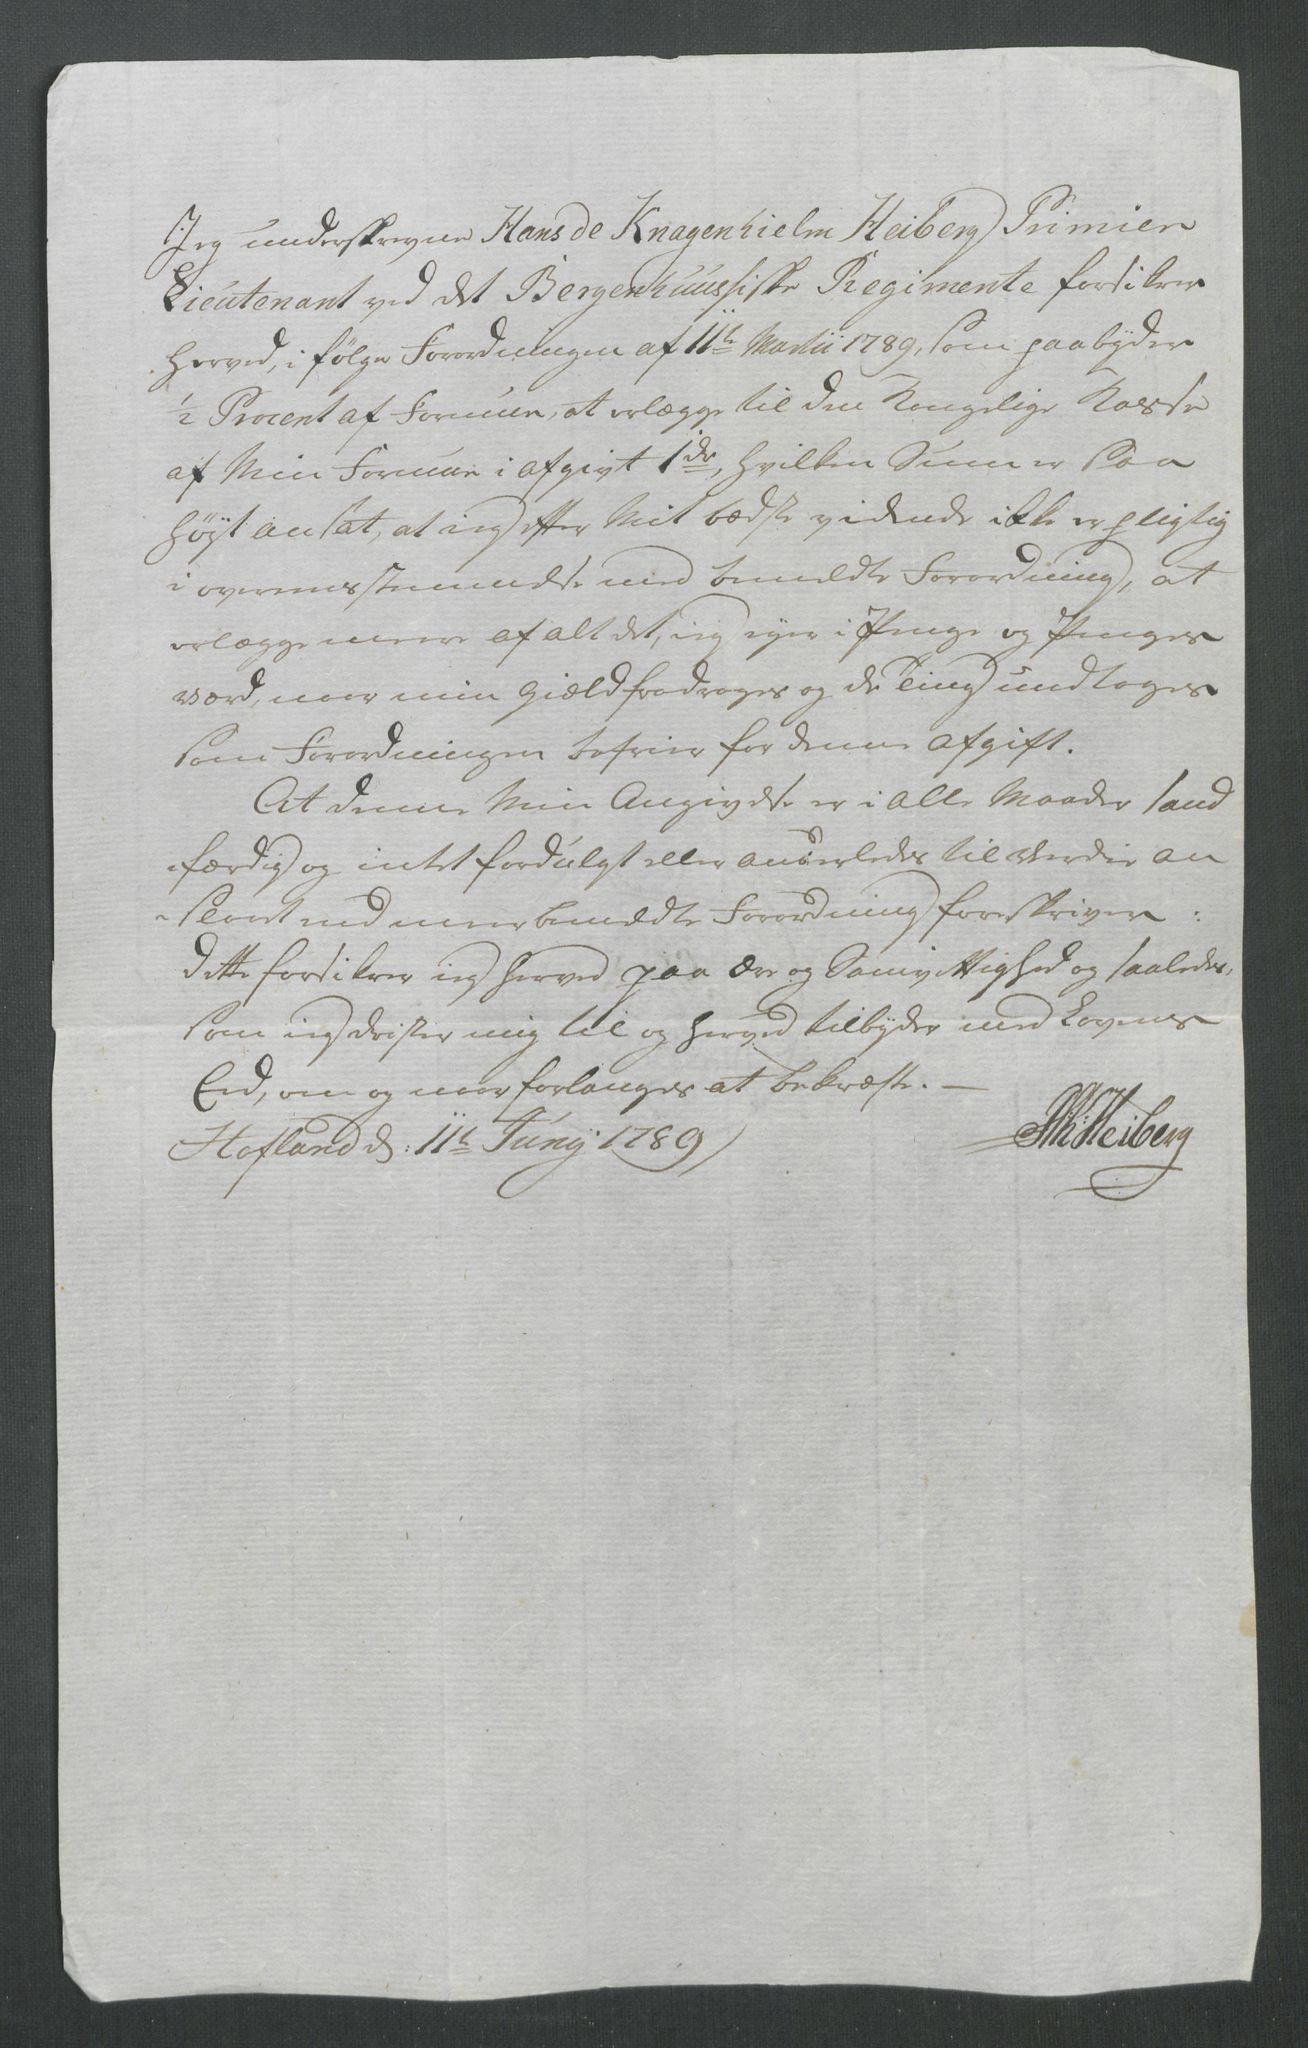 Jeg underskrevne Hans de Knagenhielm Heiberg Primier
Lieutenant ved det Bergenhuussiske Regimente forsikrer
herved, i følge Forordningen af 11te Martii 1789, som paabyder
1/2 Procent af Formue, at erlægge til den Kongelige Kasse
af Min Formue i afgivt 1 dr, hvilken Sum er saa
høyt ansat, at ieg efter Mit bedste vidende ikke er pligtig
i overensstemmelse med bemeldte Forordning, at
erlægge meere af alt det, ieg eyer i Penge og Penges
værd, naar min Gield fradrages og de Ting undtages
som Forordningen befrier for denne afgift.
At denne Min Angivelse er i alle Maader sand
færdig og intet fordulgt eller anderledes til Verdie an
slaaet end meerbemeldte Forordning foreskriver:
dette forsikrer ieg herved paa Ære og Samvittighed og saaledes,
som ieg drister mig til og herved tilbyder med Lovens
Eed, om og naar forlanges at bekræfte. —
Hofland d: 11te Junij 1789
Heiberg